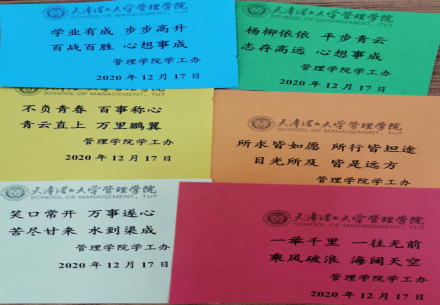 天津理工大学管理学院
SCHOOL OF MANAGEMENT, TUT
学业有成 步步高升
百战百胜 心想事成
管理学院学工办
2020 年 12 月 17 日
天津理工大学管理学院
SCHOOL OF MANAGEMENT, TUT
杨柳依依 平步青云
志存高远 心想事成
管理学院学工办
2020 年 12 月 17 日
天津理工大学管理学院
SCHOOL OF MANAGEMENT, TUT
不负青春 百事称心
青云直上 万里鹏翼
管理学院学工办
2020 年 12 月 17 日
天津理工大学管理学院
SCHOOL OF MANAGEMENT, TUT
所求皆如愿 所行皆坦途
目光所及 皆是远方
管理学院学工办
天津理工大学管理学院
SCHOOL OF MANAGEMENT, TUT
笑口常开 万事遂心
苦尽甘来 水到渠成
管理学院学工办
2020 年 12 月 17 日
天津理工大学管理学院
SCHOOL OF MANAGEMENT, TUT
一举千里 一往无前
乘风破浪 海阔天空
管理学院学工办
2020 年 12 月 17 日